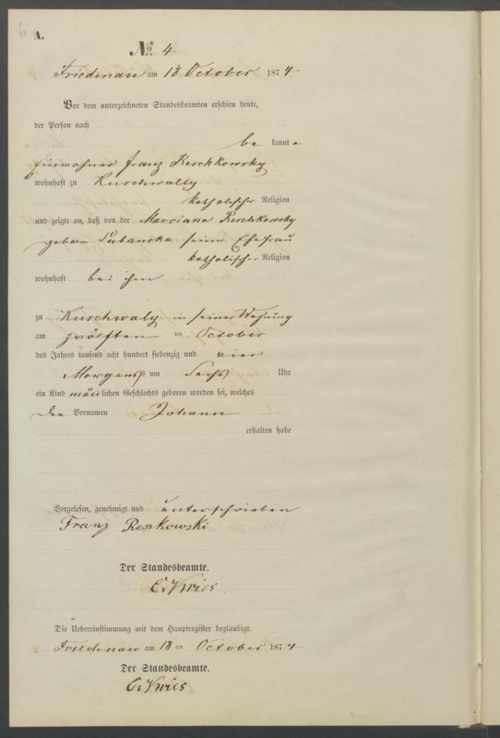 6
A.
No. 4
Friedenau am 18 October 1874
Vor dem unterzeichneten Standesbeamten erschien heute,
der Person nach
be kannt e
Einwohner Franz Reschkowsky
wohnhaft zu Kurschwally
katholischer Religion
und zeigte an, daß von der Marciana Reschkowsky
geboren Lubanska seiner Ehefrau
katholischer Religion
wohnhaft bei ihm
zu Kurschwaly in seiner Wohnung
am zwölften ten October
des Jahres tausend acht hundert siebenzig und vier
Morgens um Sechs Uhr
ein Kind männlichen Geschlechts geboren worden sei, welches
den Vornamen Johann
erhalten habe
Vorgelesen, genehmigt und unterschrieben
Franz Roskowski
Der Standesbeamte.
Die Uebereinstimmung mit dem Hauptregister beglaubigt.
Friedenau am 18 ten October 1874
Der Standesbeamte.